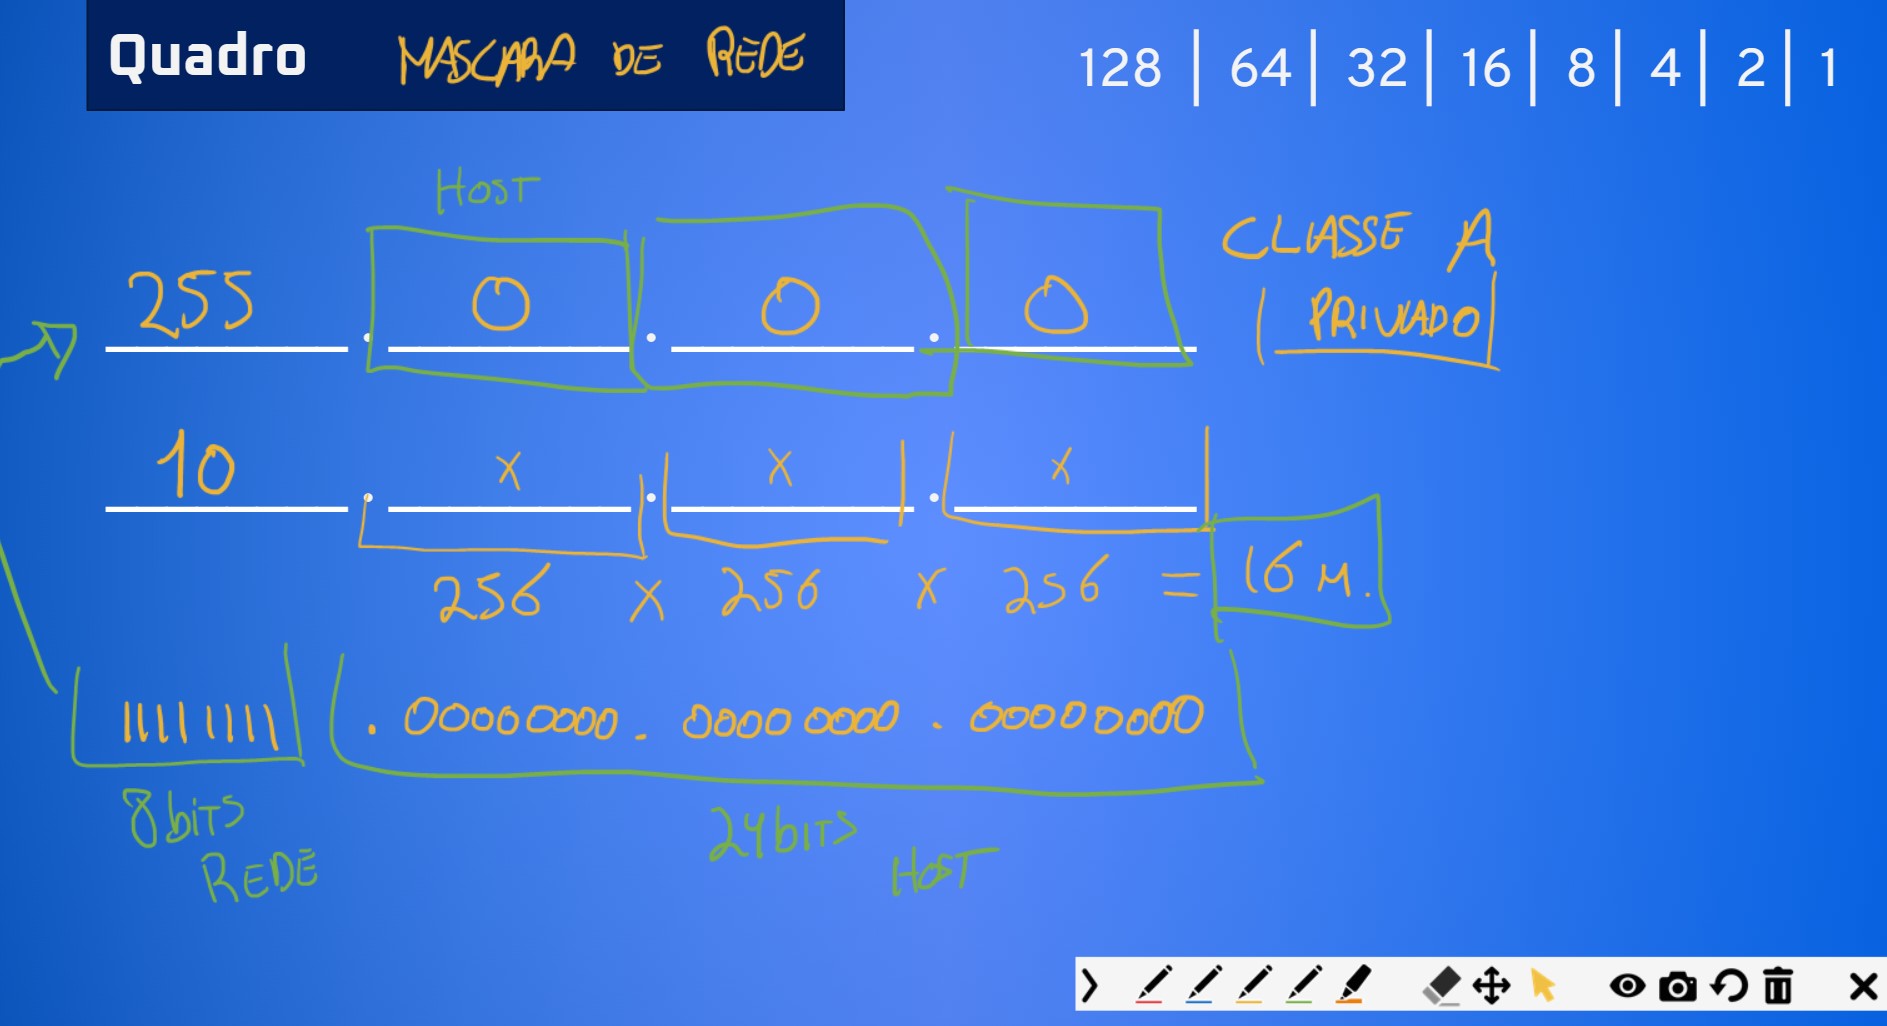 Quadro MASCARA DE REDE 128 | 64 | 32 | 16 | 8 | 4 | 2 | 1
HOST
CLASSE A
255 . 0 . 0 . 0
PRIVADO
10 . x . x . x
256 x 256 x 256 = 16 M.
11111111 . 00000000 . 00000000 . 00000000
8 bits
REDE
24 bits
HOST